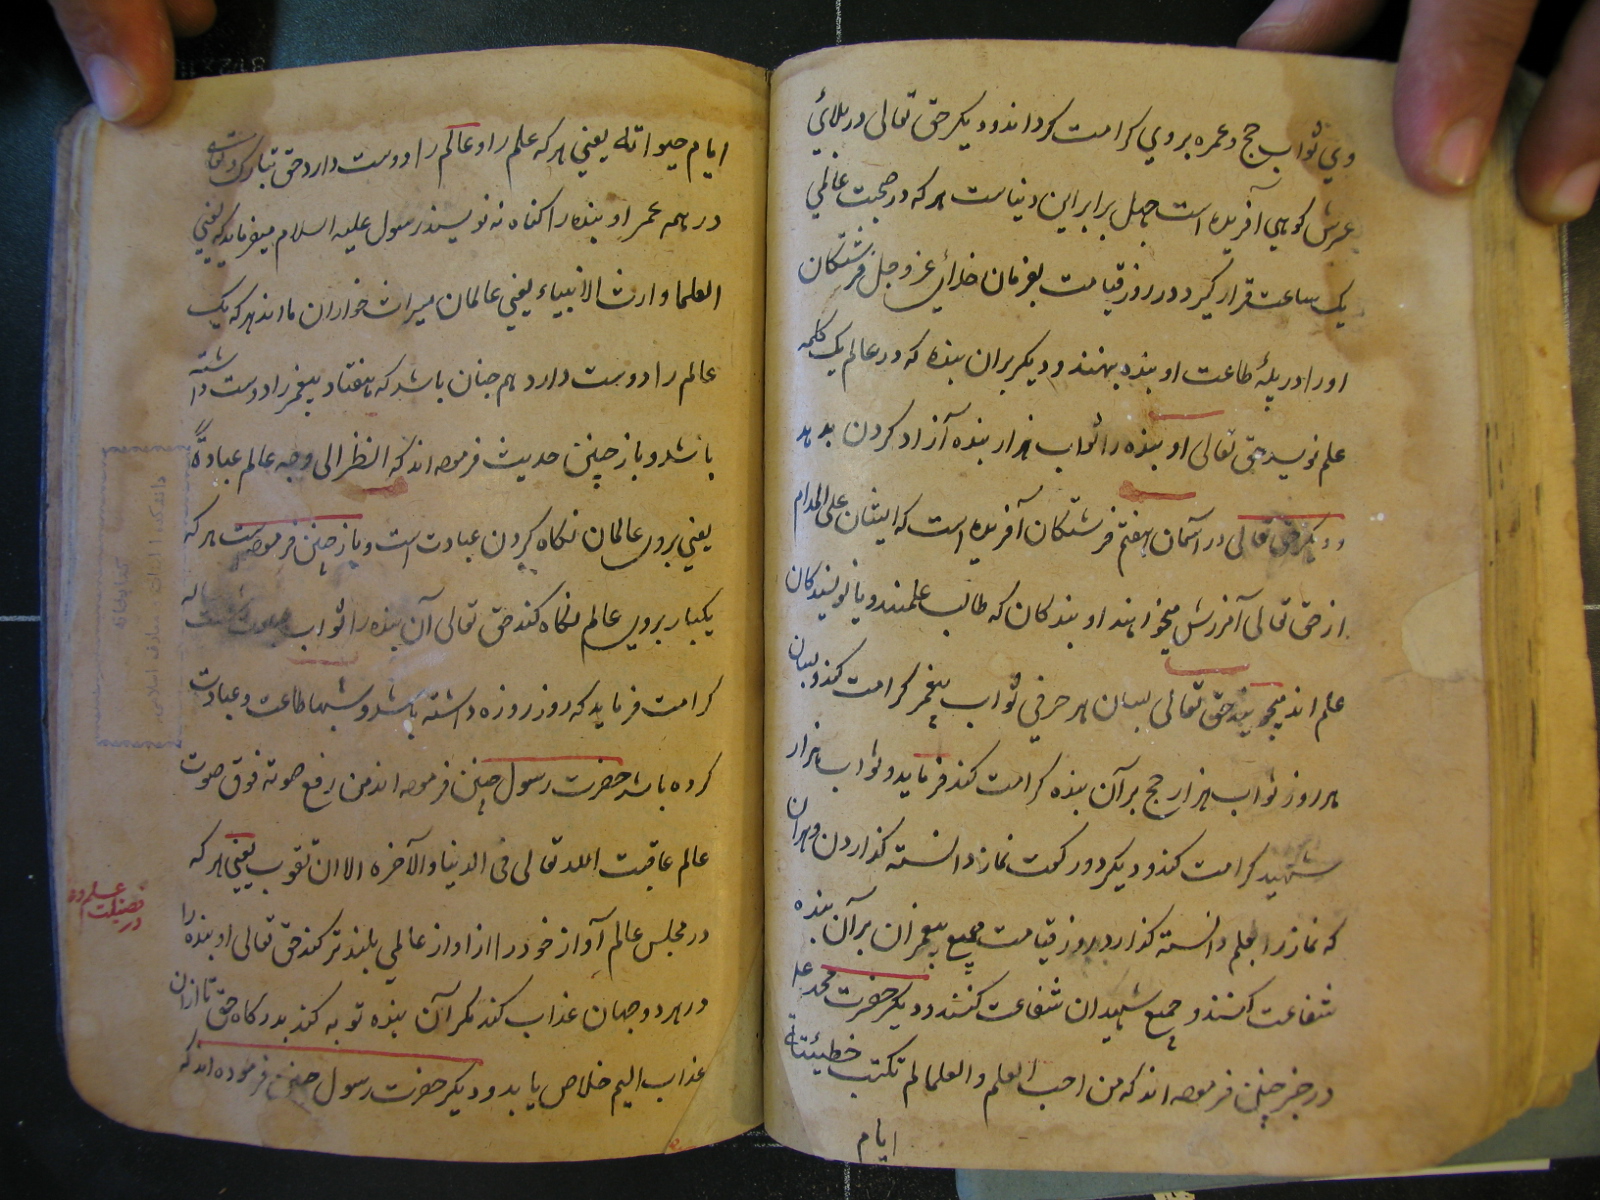 وي ثواب حج و عمره بروي كرامت كرداند و ديكر حق تعالى در بلائي
عرش كوهي آفريده است چهل برابر اين دنياست هر كه در صحبت عالمي
يك ساعت قرار كيرد در روز قيامت بفرمان خداي عز و جل فرشتكان
او را در پلهٔ طاعت او بنده بنهند و ديكر بر آن بنده كه در عالم يك كلمه
علم نويسد حق تعالى او بنده را ثواب هزار بنده آزاد كردن بدهد
و ديكر حق تعالى در آسمان هفتم فرشتكان آفريده است كه ايشان على الدام
از حق تعالى آمرزش ميخواهند او بندكان كه طالب علمند و يا نويسندكان
علم اند حق تعالى بسان هر حرفي ثواب پيغمبر كرامت كند و بسان
هر روز ثواب هزار حج بر آن بنده كرامت كند فرمايد و ثواب هزار
شهيد كرامت كند و ديكر دو ركعت نماز دانسته كذاردن و هر آن
كه نماز را بعلم دانسته كذارد روز قيامت جميع پيغمبران بر آن بنده
شفاعت كنند و جميع شهيدان شفاعت كنند و ديكر حضرت محمد علم
در خبر چنين فرموده اند كه من احب العلم و العلما لم تكتب خطيئته
ايام
ايام حيواته يعني هر كه علم را و عالم را دوست دارد حق تبارك و تعالى
در همه عمر او بنده را كناه نه نويسند رسول عليه السلام ميفرمايد كه يعني
العلما وارث الانبياء يعني عالمان ميراث خواران ما اند هر كه يك
عالم را دوست دارد هم چنان باشد كه هفتاد پيغمبر را دوست داشته
باشد و باز چنين حديث فرموده اند كه النظر الى وجه عالم عبادةً
يعني بروي عالمان نكاه كردن عبادت است و باز چنين فرموده است هر كه
يكبار بروي عالم نكاه كند حق تعالى آن بنده را ثواب شصت ساله
كرامت فرمايد كه روز روزه داشته باشد و شبها طاعت و عبادت
كرده باشد حضرت رسول چنين فرموده اند من رفع صوته فوق صوت
عالم عاقبت الله تعالى فى الدنيا و الآخره الا ان تقوب يعني هر كه
در مجلس عالم آواز خود را از اواز عالمي بلند تر كند حق تعالى او بنده را
در هر دو جهان عذاب كند مكر آن بنده توبه كند بدركاه حق تا از ان
عذاب اليم خلاص يابد و ديكر حضرت رسول چنين فرموده اند كه
در فضيلت علم